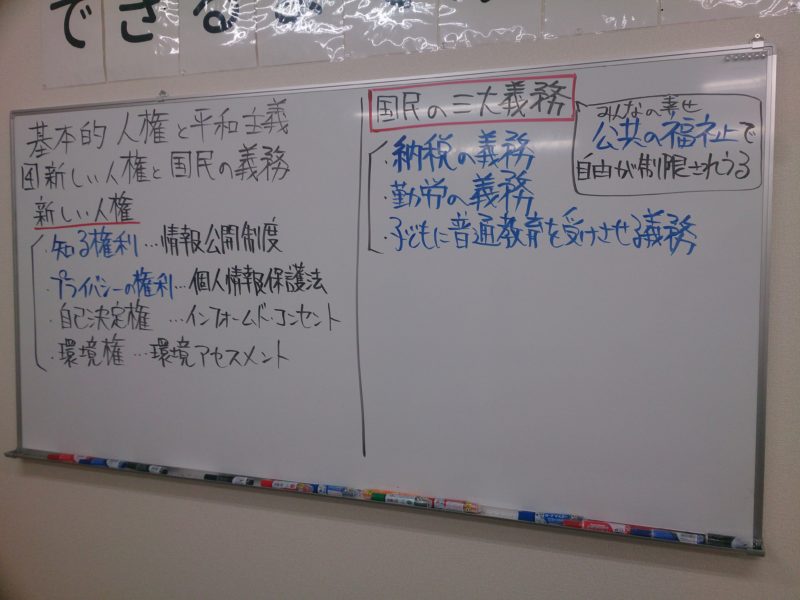 できる
基本的人権と平和主義
④新しい人権と国民の義務
新しい人権
・知る権利…情報公開制度
・プライバシーの権利…個人情報保護法
・自己決定権…インフォームド・コンセント
・環境権…環境アセスメント
国民の三大義務
・納税の義務
・勤労の義務
・子どもに普通教育を受けさせる義務
みんなの幸せ
公共の福祉で
自由が制限されうる